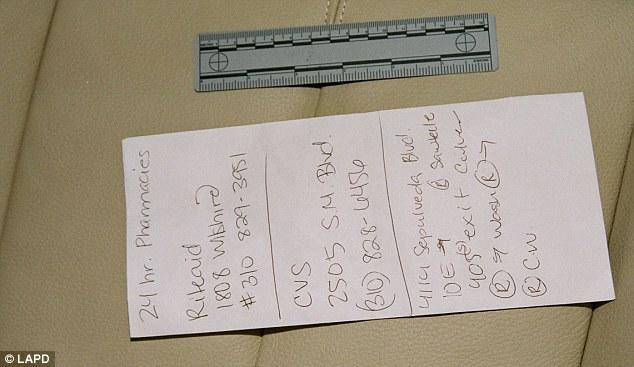 24 hr. Pharmacies
Riteaid
1808 Wilshire
#310 829-3951
CVS
2505 S.M. Blvd.
(310) 828-6456
4114 Sepulveda Blvd.
10E → @ Sawtelle
405 S exit Culver
Ⓡ → Wash Ⓡ →
Ⓡ CW
© LAPD